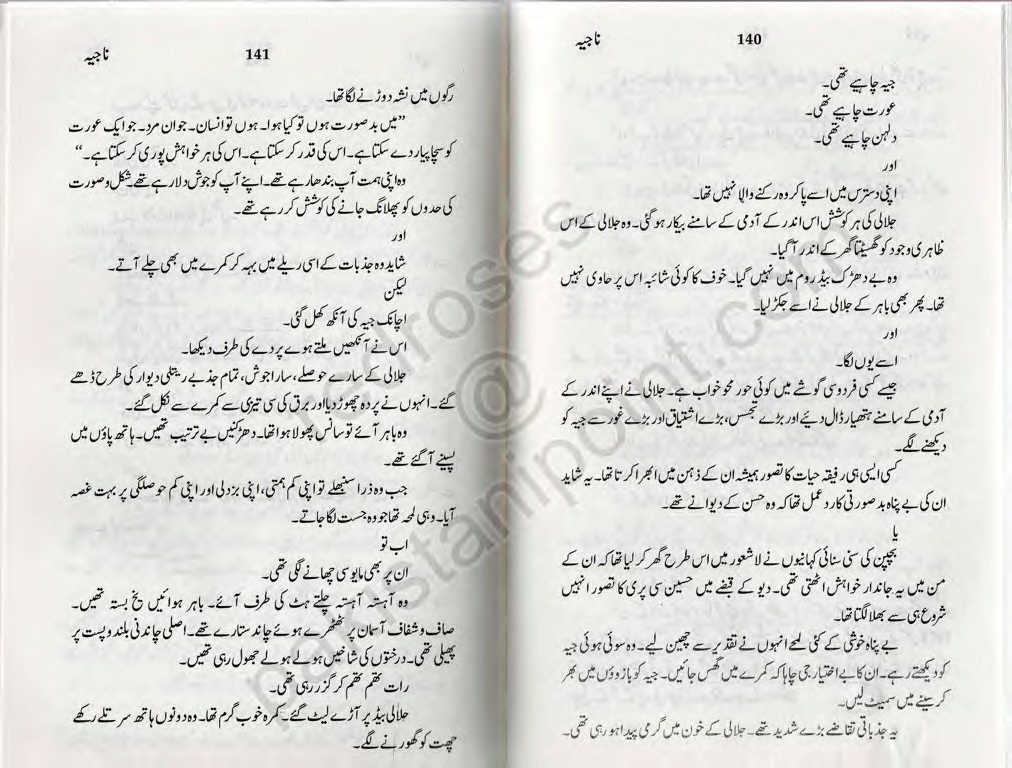 ناجیہ
140
جیہ چاہیے تھی۔
عورت چاہیے تھی۔
دلہن چاہیے تھی۔
اور
اپنی دسترس میں اسے پا کر وہ رکنے والا نہیں تھا۔
جلالی کی ہر کوشش اس اندر کے آدمی کے سامنے بیکار ہو گئی۔ وہ جلالی کے اس
ظاہری وجود کو گھسیٹتا گھر کے اندر آ گیا۔
وہ بے دھڑک بیڈ روم میں نہیں گیا۔ خوف کا کوئی شائبہ اس پر حاوی نہیں
تھا۔ پھر بھی باہر کے جلالی نے اسے جکڑ لیا۔
اور
اسے یوں لگا۔
جیسے کسی فردوسی گوشے میں کوئی حور محو خواب ہے۔ جلالی نے اپنے اندر کے
آدمی کے سامنے ہتھیار ڈال دیئے اور بڑے تجسس، بڑے اشتیاق اور بڑے غور سے جیہ کو
دیکھنے لگے۔
کسی ایسی ہی رفیقہ حیات کا تصور ہمیشہ ان کے ذہن میں ابھرا کرتا تھا۔ یہ شاید
ان کی بے پناہ بد صورتی کا رد عمل تھا کہ وہ حسن کے دیوانے تھے۔
یا
بچپن کی سنی سنائی کہانیوں نے لا شعور میں اس طرح گھر کر لیا تھا کہ ان کے
من میں یہ جاندار خواہش اٹھتی تھی۔ دیو کے قبضے میں حسین سی پری کا تصور انہیں
شروع ہی سے بھلا لگتا تھا۔
بے پناہ خوشی کے کئی لمحے انہوں نے تقدیر سے چھین لیے۔ وہ سوئی ہوئی جیہ
کو دیکھتے رہے۔ ان کا بے اختیار جی چاہا کہ کمرے میں گھس جائیں۔ جیہ کو بازوؤں میں بھر
کر سینے میں سمیٹ لیں۔
یہ جذباتی تقاضے بڑے شدید تھے۔ جلالی کے خون میں گرمی پیدا ہو رہی تھی۔
ناجیہ
141
رگوں میں نشہ دوڑنے لگا تھا۔
”میں بد صورت ہوں تو کیا ہوا۔ ہوں تو انسان۔ جوان مرد۔ جو ایک عورت
کو سچا پیار دے سکتا ہے۔ اس کی قدر کر سکتا ہے۔ اس کی ہر خواہش پوری کر سکتا ہے۔“
وہ اپنی ہمت آپ بندھا رہے تھے۔ اپنے آپ کو جوش دلا رہے تھے۔ شکل و صورت
کی حدوں کو پھلانگ جانے کی کوشش کر رہے تھے۔
اور
شاید وہ جذبات کے اسی ریلے میں بہہ کر کمرے میں بھی چلے آتے۔
لیکن
اچانک جیہ کی آنکھ کھل گئی۔
اس نے آنکھیں ملتے ہوے پردے کی طرف دیکھا۔
جلالی کے سارے حوصلے، سارا جوش، تمام جذبے ریتلی دیوار کی طرح ڈھے
گئے۔ انہوں نے پردہ چھوڑ دیا اور برق کی سی تیزی سے کمرے سے نکل گئے۔
وہ باہر آئے تو سانس پھولا ہوا تھا۔ دھڑکنیں بے ترتیب تھیں۔ ہاتھ پاؤں میں
پسینے آ گئے تھے۔
جب وہ ذرا سنبھلے تو اپنی کم ہمتی، اپنی بزدلی اور اپنی کم حوصلگی پر بہت غصہ
آیا۔ وہی لمحہ تھا جو وہ جست لگا جاتے۔
اب تو
ان پر بھی مایوسی چھانے لگی تھی۔
وہ آہستہ آہستہ چلتے ہٹ کی طرف آئے۔ باہر ہوائیں یخ بستہ تھیں۔
صاف و شفاف آسمان پر ٹھٹھرے ہوئے چاند ستارے تھے۔ اصلی چاندنی بلند و پست پر
پھیلی تھی۔ درختوں کی شاخیں ہولے ہولے جھول رہی تھیں۔
رات تھم تھم کر گزر رہی تھی۔
جلالی بیڈ پر آڑے لیٹ گئے۔ کمرہ خوب گرم تھا۔ وہ دونوں ہاتھ سر تلے رکھے
چھت کو گھورنے لگے۔